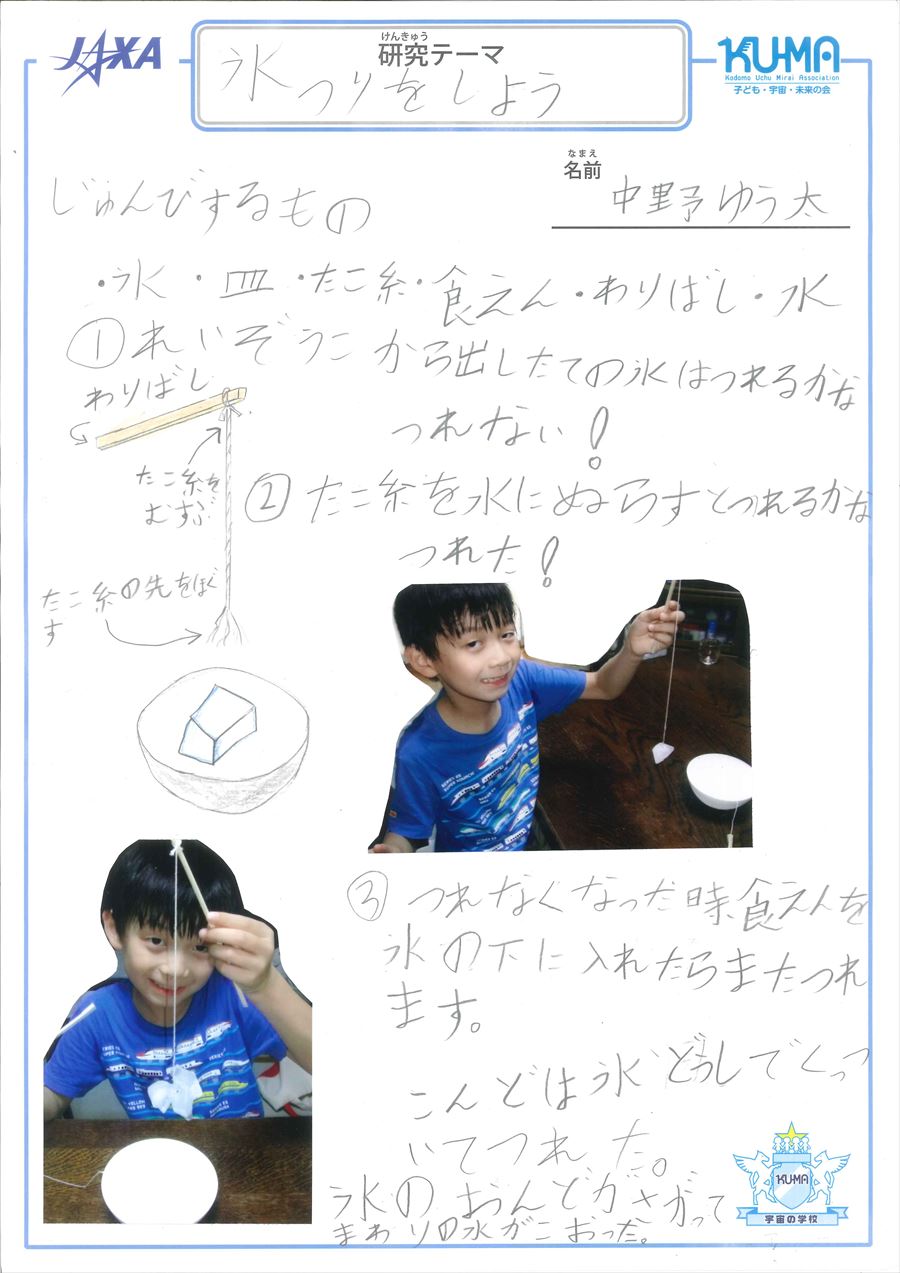 JAXA
けんきゅう
研究テーマ
氷つりをしよう
KU-MA
Kodomo Uchu Mirai Association
子ども・宇宙・未来の会
なまえ
名前
中野ゆう太
じゅんびするもの
・氷・皿・たこ糸・食えん・わりばし・水
①れいぞうこから出したての氷はつれるかな
つれない!
わりばし
たこ糸を
むすぶ
②たこ糸を水にぬらすとつれるかな
つれた!
たこ糸の先をほぐ
す
③つれなくなった時食えんを
氷の下に入れたらまたつれ
ます。
こんどは氷どうしでくっ
いてつれた。
氷のおんどがさがって
まわりの水がこおった。
KU-MA
宇宙の学校